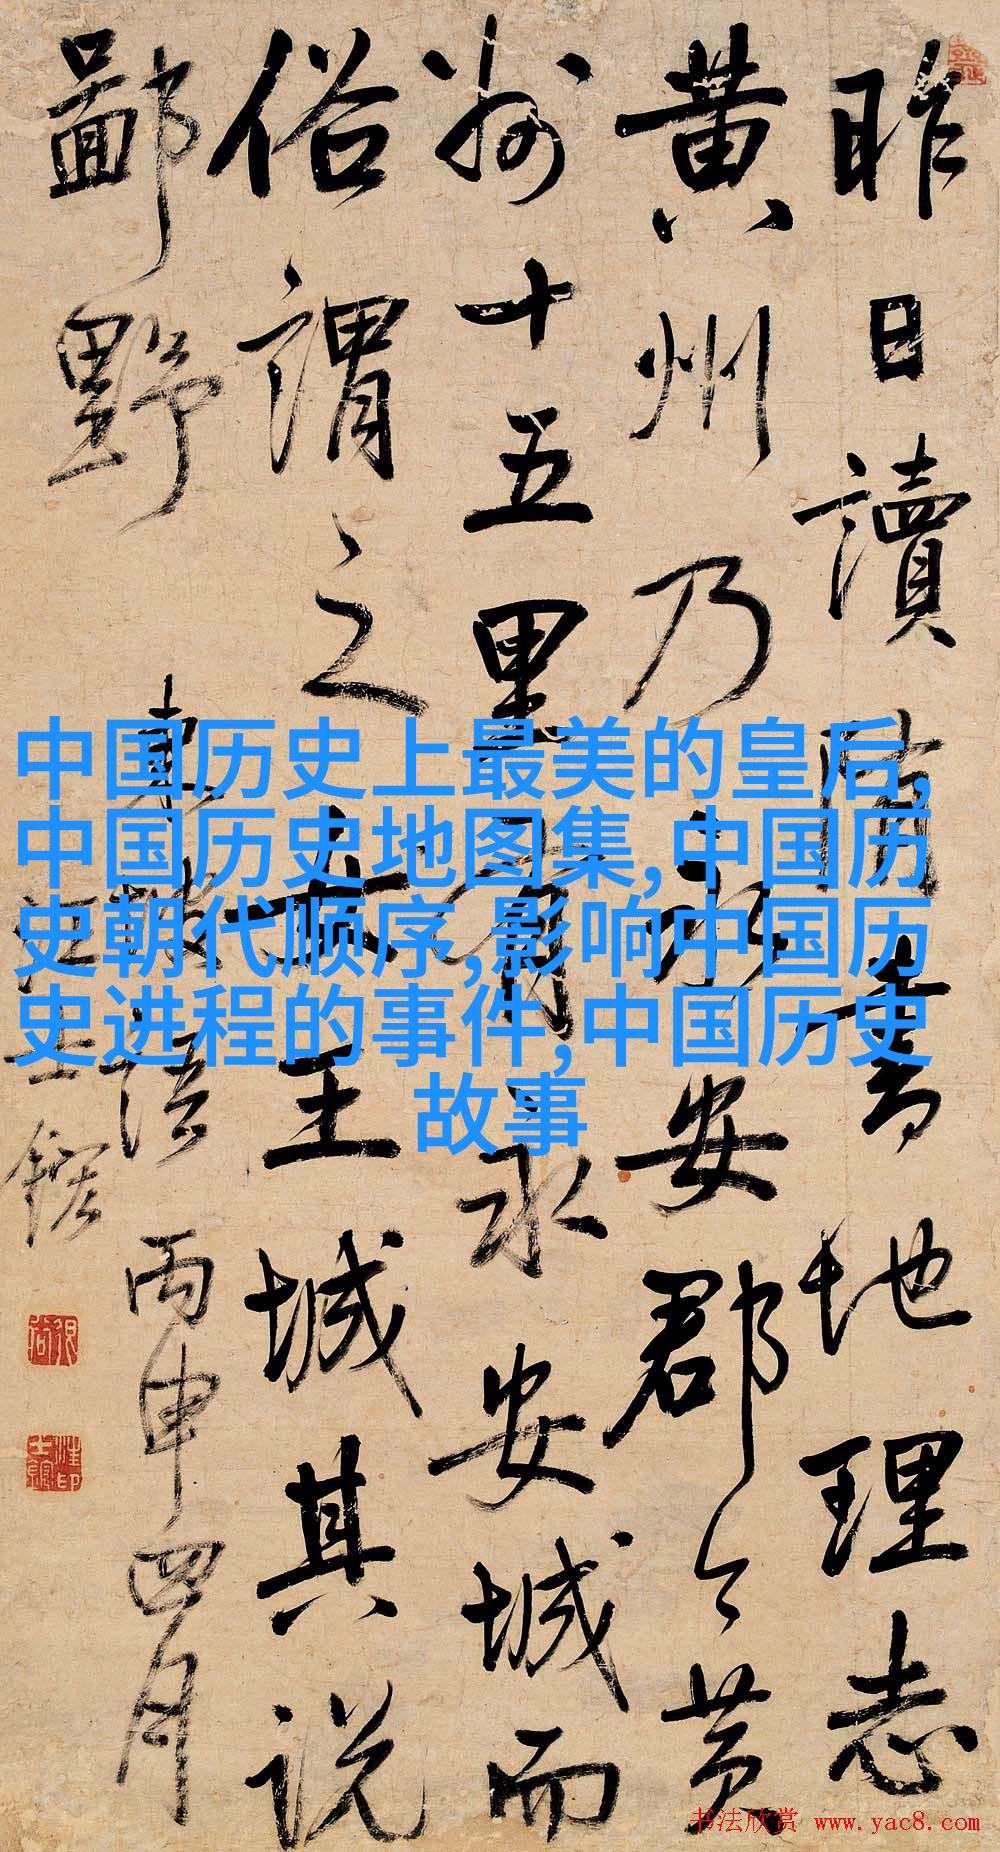 昨日讀隋書地理志
黄州乃永安郡今黄
州十五里有永安城而
俗謂之女王城其説
鄙野
東坡語 丙申四月
汪士鋐
中国历史上最美的皇后,
中国历史地图集,中国历
史朝代顺序,影响中国历
史进程的事件,中国历史
故事
书法欣赏 www.yac8.com